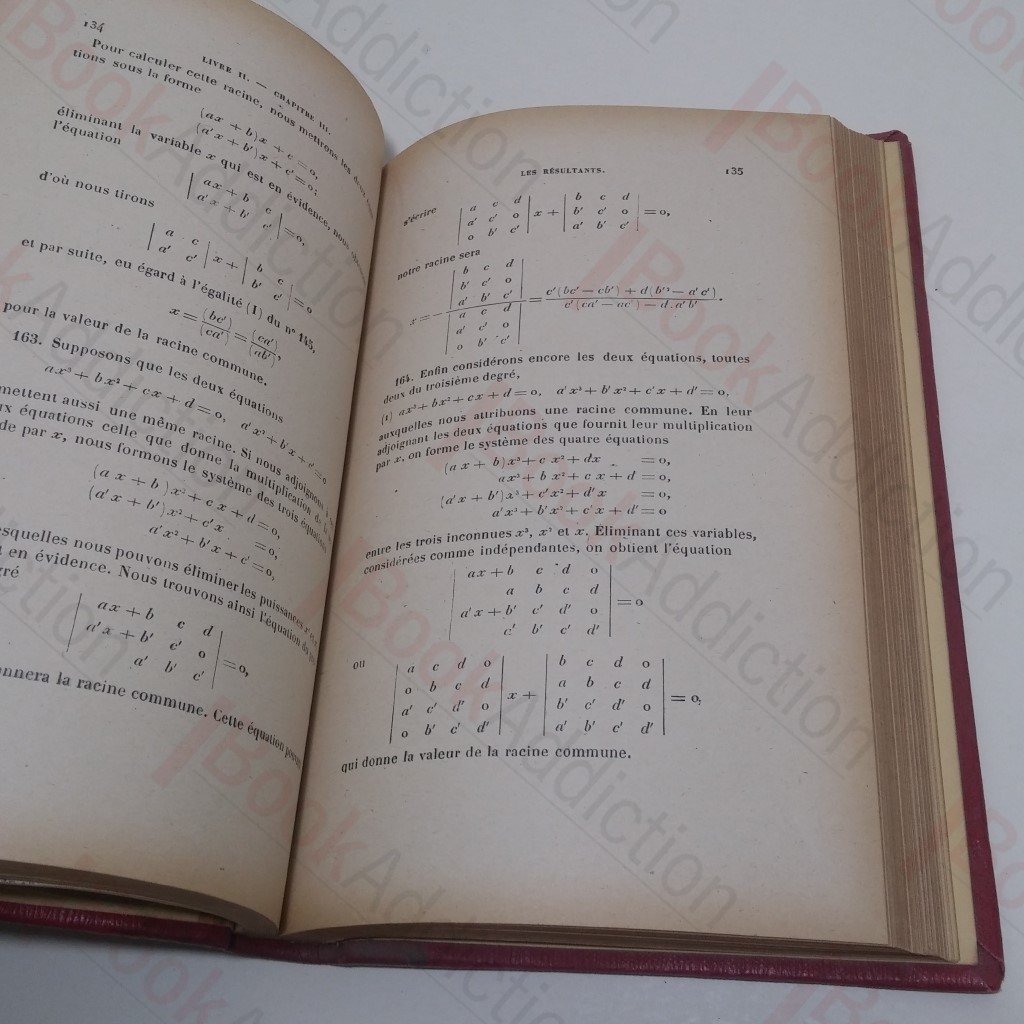 134
LIVRE II. — CHAPITRE III.
Pour calculer cette racine, nous mettrons les deux
tions sous la forme
(ax + b)x + c = o,
(a'x + b')x + c' = o;
éliminant la variable x qui est en évidence, nous
l'équation
| ax + b c |
| a'x + b' c' | = o,
d'où nous tirons
| a c | x + | b c |
| a' c' | | b' c' | = o
et par suite, eu égard à l'égalité (1) du n° 145,
x = (bc')/(ca') = (ca')/(ab'),
pour la valeur de la racine commune.
163. Supposons que les deux équations
ax³ + bx² + cx + d = o, a'x² + b'x + c' = o
mettent aussi une même racine. Si nous adjoignons
ux équations celle que donne la multiplication de la
de par x, nous formons le système des trois équations
(ax + b)x² + cx + d = o,
(a'x + b')x² + c'x = o,
a'x² + b'x + c' = o,
esquelles nous pouvons éliminer les puissances x²
en évidence. Nous trouvons ainsi l'équation du
gré
| ax + b c d |
| a'x + b' c' o | = o,
| a' b' c' |
onnera la racine commune. Cette équation
LES RÉSULTANTS. 135
s'écrire
| a c d | | b c d |
| a' c' o | x + | b' c' o | = o,
| o b' c' | | a' b' c' |
notre racine sera
| b c d |
| b' c' o |
| a' b' c' |
x = − ——— = c'(bc' − cb') + d(b'² − a'c') / c'(ca' − ac') − d.a'b' .
| a c d |
| a' c' o |
| o b' c' |
164. Enfin considérons encore les deux équations, toutes
deux du troisième degré,
(1) ax³ + bx² + cx + d = o, a'x³ + b'x² + c'x + d' = o,
auxquelles nous attribuons une racine commune. En leur
adjoignant les deux équations que fournit leur multiplication
par x, on forme le système des quatre équations
(ax + b)x³ + cx² + dx = o,
ax³ + bx² + cx + d = o,
(a'x + b')x³ + c'x² + d'x = o,
a'x³ + b'x² + c'x + d' = o
entre les trois inconnues x³, x² et x. Éliminant ces variables,
considérées comme indépendantes, on obtient l'équation
| ax + b c d o |
| a b c d |
| a'x + b' c' d' o | = o
| c' b' c' d' |
ou
| a c d o | | b c d o |
| o b c d | x + | a b c d | = o,
| a' c' d' o | | b' c' d' o |
| o b' c' d' | | a' b' c' d' |
qui donne la valeur de la racine commune.